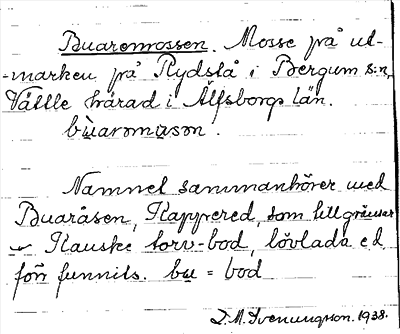 Buaremossen. Mosse på ut-
-marken på Rydslå i Bergum s:n,
Vättle härad i Älfsborgs län.
bùaromuson.
Namnet sammanhörer med
Buaråsen, Kappered, som tillgränsar
Kanske torv-bod, lövlada e.d.
förr funnits. bu = bod
D.M. Svenungsson. 1938.